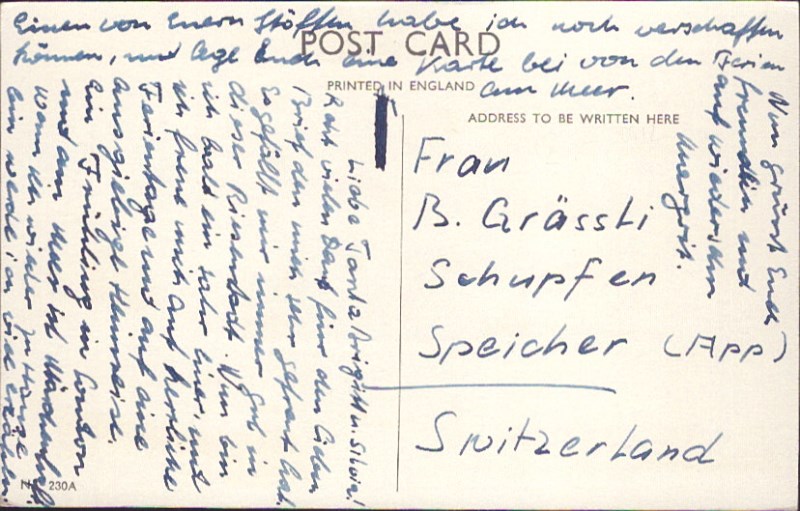 POST CARD
PRINTED IN ENGLAND
ADDRESS TO BE WRITTEN HERE
Liebe Tante Brigitt u. Silvia!
Recht vielen Dank für den lieben
Brief der mich sehr gefreut hat.
Es gefällt mir immer gut in
dieser Riesenstadt. Nun bin
ich bald ein Jahr hier, und
ich freue mich auf herrliche
Ferientage und auf eine
ausgiebige Heimreise.
Ein Frühling in London
und am Meer ist märchenhaft
wenn ich wieder zu Hause
ein werde ich viel erzählen.
Einen von Euern Stoffen habe ich noch verschaffen
können, und lege Euch eine Karte bei von den Ferien
am Meer.
Nun grüsst Euch
freundlich und
auf wiedersehn
Margrit.
Frau
B. Grässli
Schupfen
Speicher (App)
Switzerland
No 230A